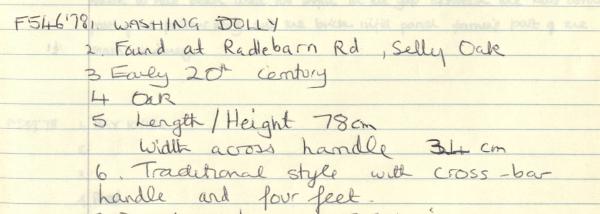 F546'78. 1. WASHING DOLLY
2. Found at Raddlebarn Rd, Selly Oak
3 Early 20th century
4 Oak
5 Length/Height 78cm
Width across handle 34 cm
6. Traditional style with cross-bar
handle and four feet.